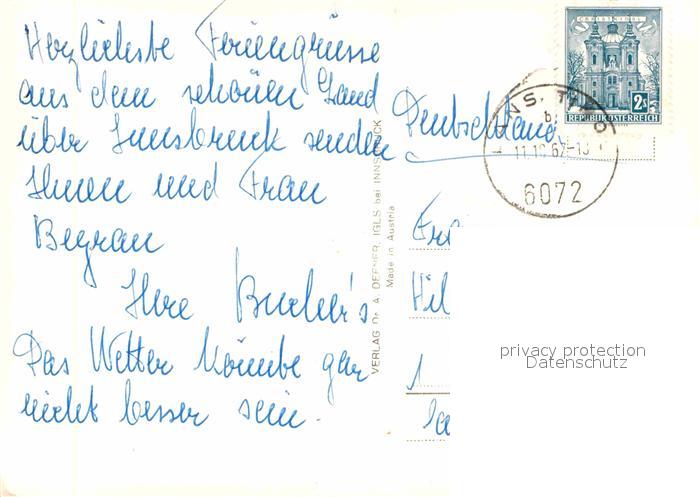 Herzlichste Feriengrüsse
aus dem schönen Land
über Innsbruck senden
Ihnen und Frau
Begrau
Ihre Bucher's
Das Wetter könnte gar
nicht besser sein.
VERLAG Dr. A. DEFNER, IGLS bei INNSBRUCK
Made in Austria
Deutschland
Frl
Hil
1
CHRISTKINDL
2s
REPUBLIK ÖSTERREICH
6072
privacy protection
Datenschutz